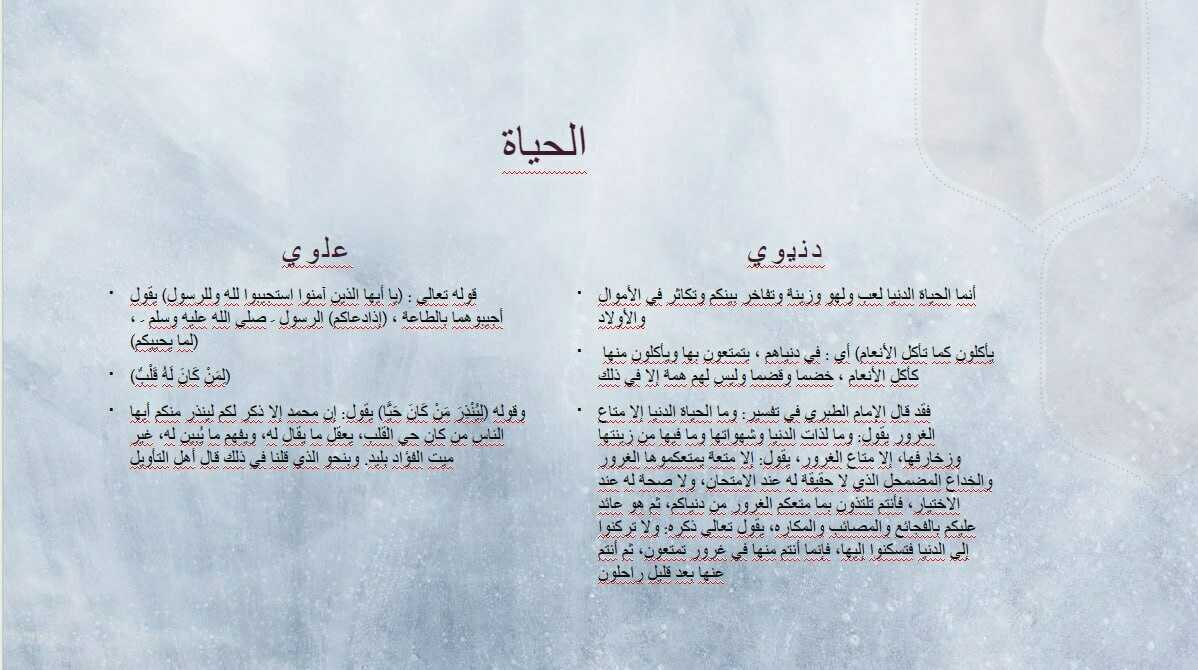 الحياة
دنيوي
أنما الحياة الدنيا لعب ولهو وزينة وتفاخر بينكم وتكاثر في الأموال
والأولاد
يأكلون كما تأكل الأنعام) أي : في دنياهم ، يتمتعون بها ويأكلون منها
كأكل الأنعام ، خضما وقضما وليس لهم همة إلا في ذلك
فقد قال الإمام الطبري في تفسير: وما الحياة الدنيا إلا متاع
الغرور يقول: وما لذات الدنيا وشهواتها وما فيها من زينتها
وزخارفها، إلا متاع الغرور، يقول: إلا متعة يمتعكموها الغرور
والخداع المضمحل الذي لا حقيقة له عند الامتحان، ولا صحة له عند
الاختبار، فأنتم تلتذون بما متعكم الغرور من دنياكم، ثم هو عائد
عليكم بالفجائع والمصائب والمكاره، يقول تعالى ذكره: ولا تركنوا
إلى الدنيا فتسكنوا إليها، فإنما أنتم منها في غرور تمتعون، ثم أنتم
عنها بعد قليل راحلون
علوي
قوله تعالى : (يا أيها الذين آمنوا استجيبوا لله وللرسول) يقول
أجيبوهما بالطاعة ، (إذادعاكم) الرسول - صلى الله عليه وسلم - ،
(لما يحييكم)
(لمَنْ كَانَ لَهُ قَلْبٌ)
وقوله (لِيُنْذِرَ مَنْ كَانَ حَيًّا) يقول: إن محمد إلا ذكر لكم لينذر منكم أيها
الناس من كان حي القلب، يعقل ما يقال له، ويفهم ما يُبين له، غير
ميت الفؤاد بليد. وبنحو الذي قلنا في ذلك قال أهل التأويل